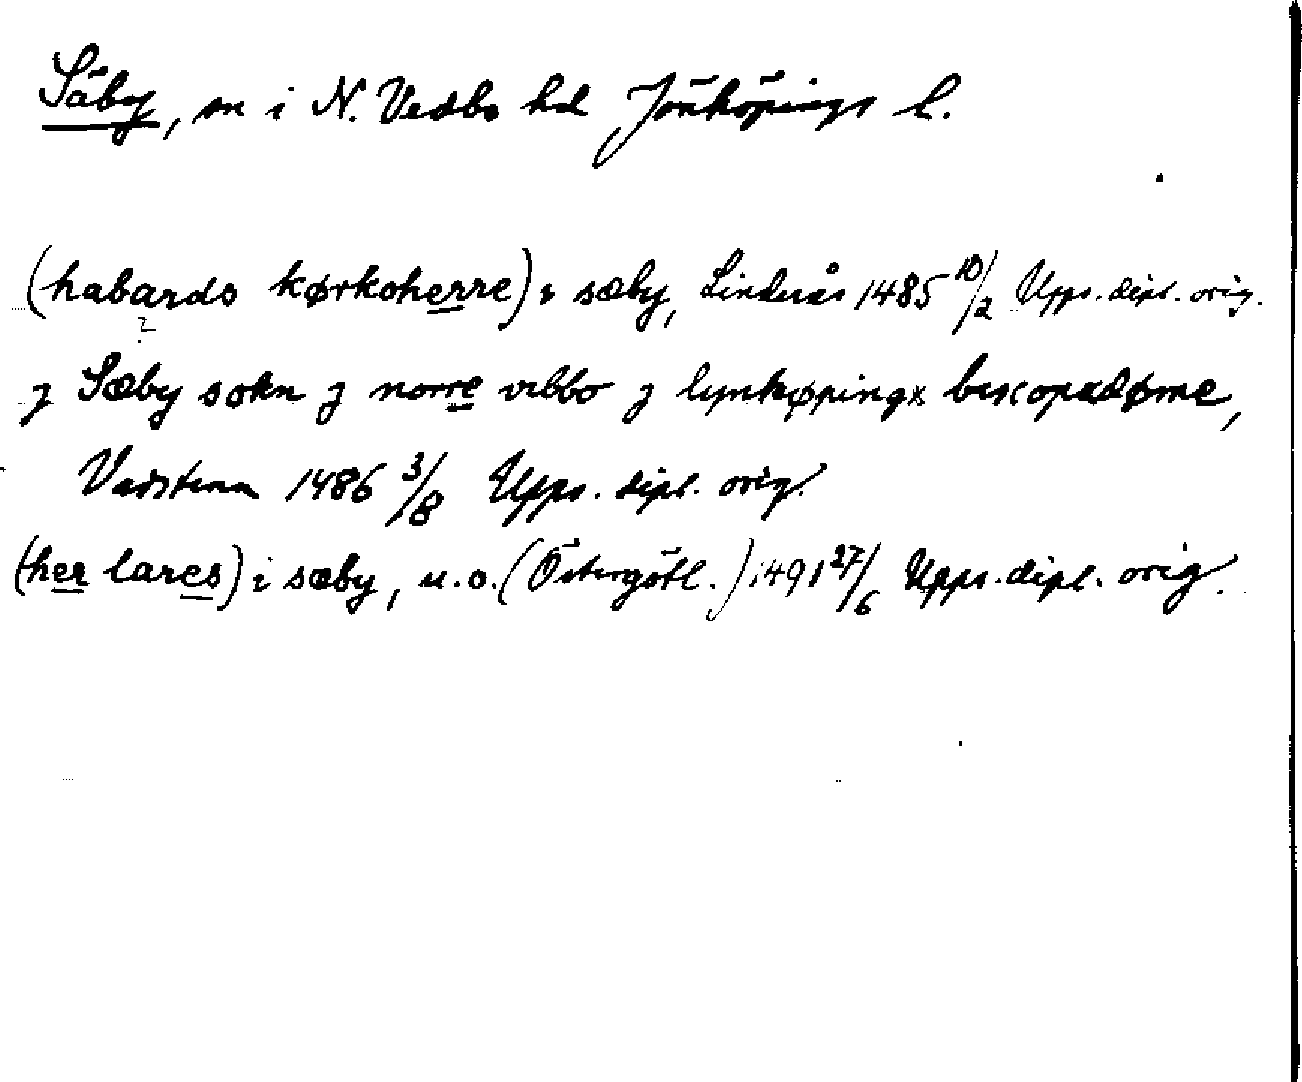 Säby, sn i N. Vedbo hd Jönköpings l.
(habardo kørkoherre) i sæby, Linderås 1485 10/2 Upps. dipl. orig.
?
j Sæby sokn j norre vibbo j lynkøpingx biscopxdøme,
Vadstena 1486 3/8 Upps. dipl. orig.
(her lares) i sæby, u.o. (Östergötl.) 1491 27/6 Upps. dipl. orig.